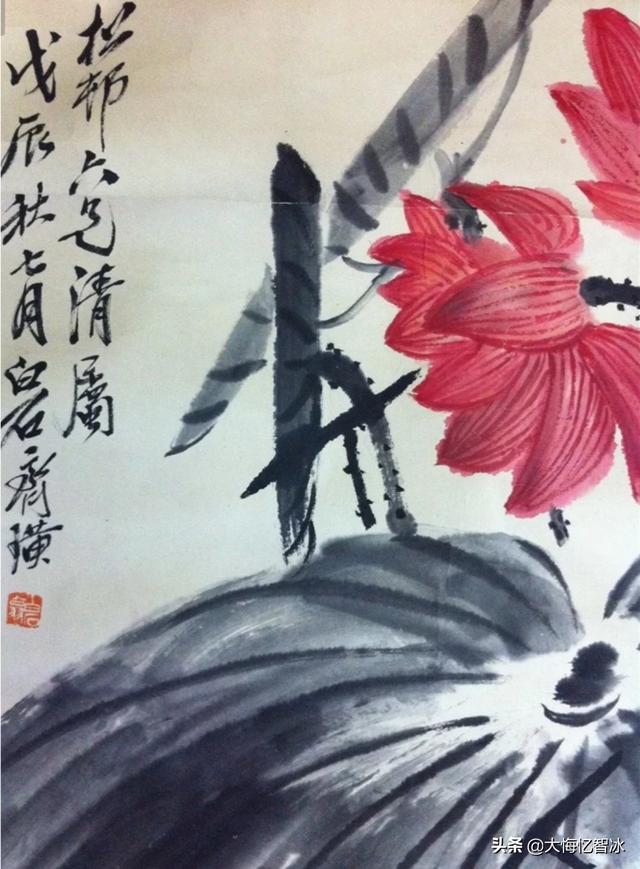 松邨六兄清屬
戊辰秋七月白石齊璜
头条 @大悔忆智冰